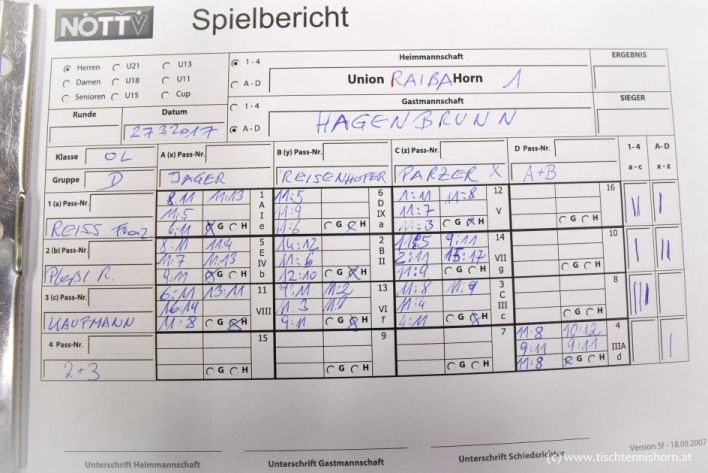 NÖTTV Spielbericht
Herren U21 U13 1-4 Heimmannschaft ERGEBNIS
Damen U18 U11 A-D Union RAIBA Horn 1
Senioren U15 Cup
1-4 Gastmannschaft SIEGER
Runde Datum A-D HAGENBRUNN
27.3.2017
Klasse OL A (x) Pass-Nr. B (y) Pass-Nr. C (z) Pass-Nr. D Pass-Nr. 1-4 A-D
Gruppe D JAGER REISENHOFER PARZER X A+B a-c x-z
1 (a) Pass-Nr. 8:11 11:13 1 11:5 6 1:11 11:8 12 16
11:5 A 11:9 D 11:7 V
REISS Franz 6:11 G H I e 11:6 G H IX a 11:3 G H
2 (b) Pass-Nr. 8:11 11:4 5 14:12 2 9:11 14 10
11:7 11:13 E 11:6 B 2:11 15:17 VII
R. 9:11 G H IV b 12:10 G H II 11:9 G H g G H
3 (c) Pass-Nr. 6:11 13:11 11 9:11 11:2 13 11:8 11:9 3 8
16:14 VIII 11:3 VI 11:4 C III
KAUFMANN 11:8 G H G H f 4:11 G H c G H
4 Pass-Nr. 15 9 7 11:8 10:12 4
9:11 9:11 IIIA
2+3 G H G H G H 11:8 G H d
Version 5f - 18.09.2007
Unterschrift Heimmannschaft Unterschrift Gastmannschaft Unterschrift Schiedsrichter
(c) www.tischtennishorn.at